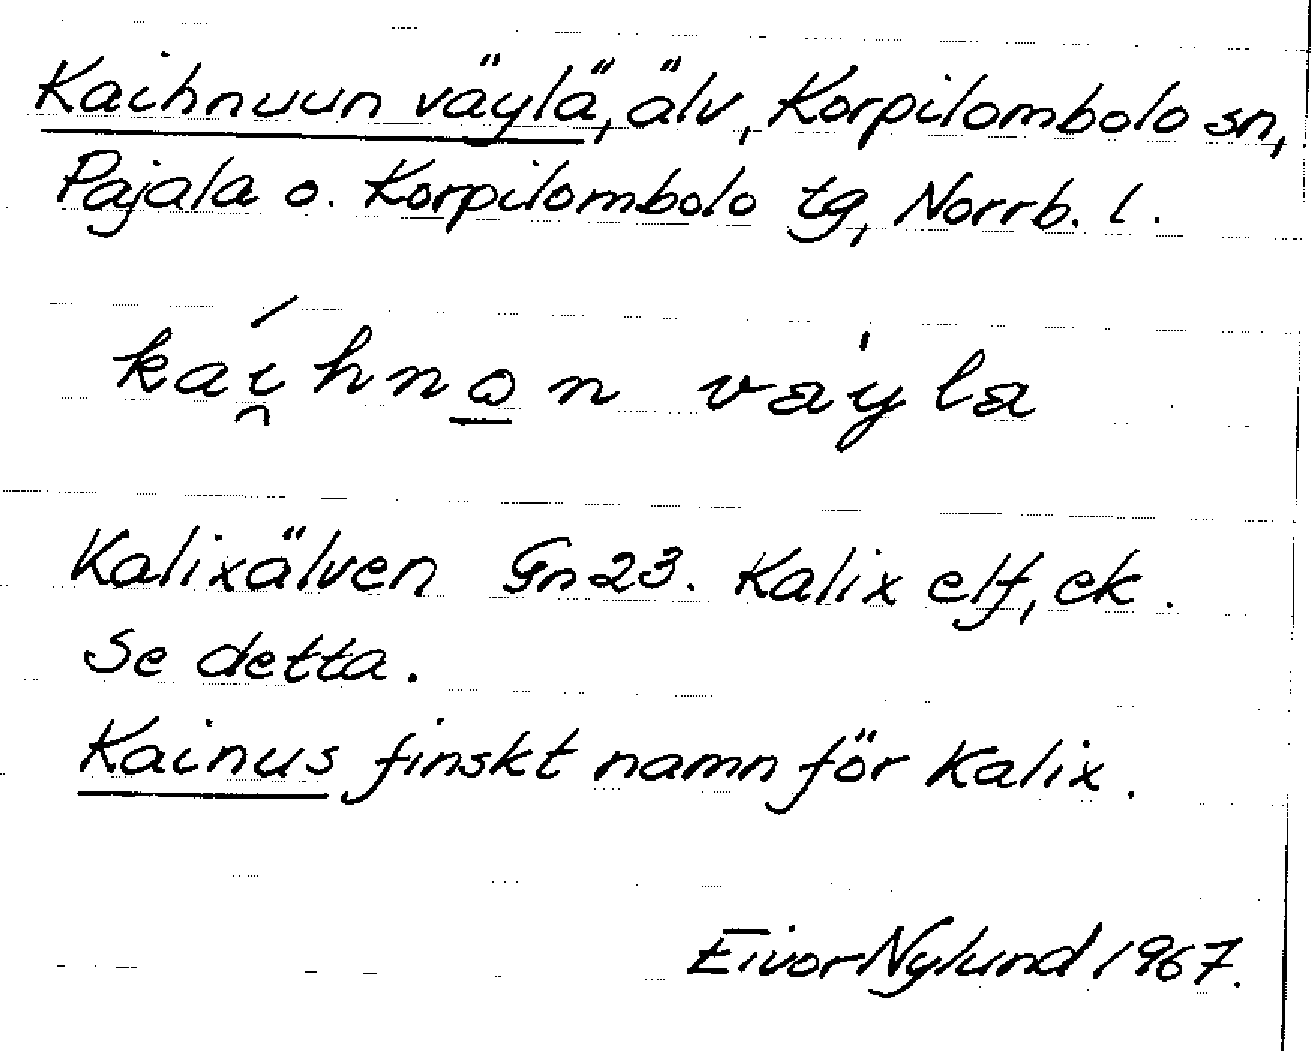 Kaihnuun väylä, älv, Korpilombolo sn,
Pajala o. Korpilombolo tg, Norrb. l.
kaı̯́hnꙍ̱n väy̍lä
Kalixälven Gn 23. Kalix elf, ek.
Se detta.
Kainus finskt namn för Kalix.
Eivor Nylund 1967.